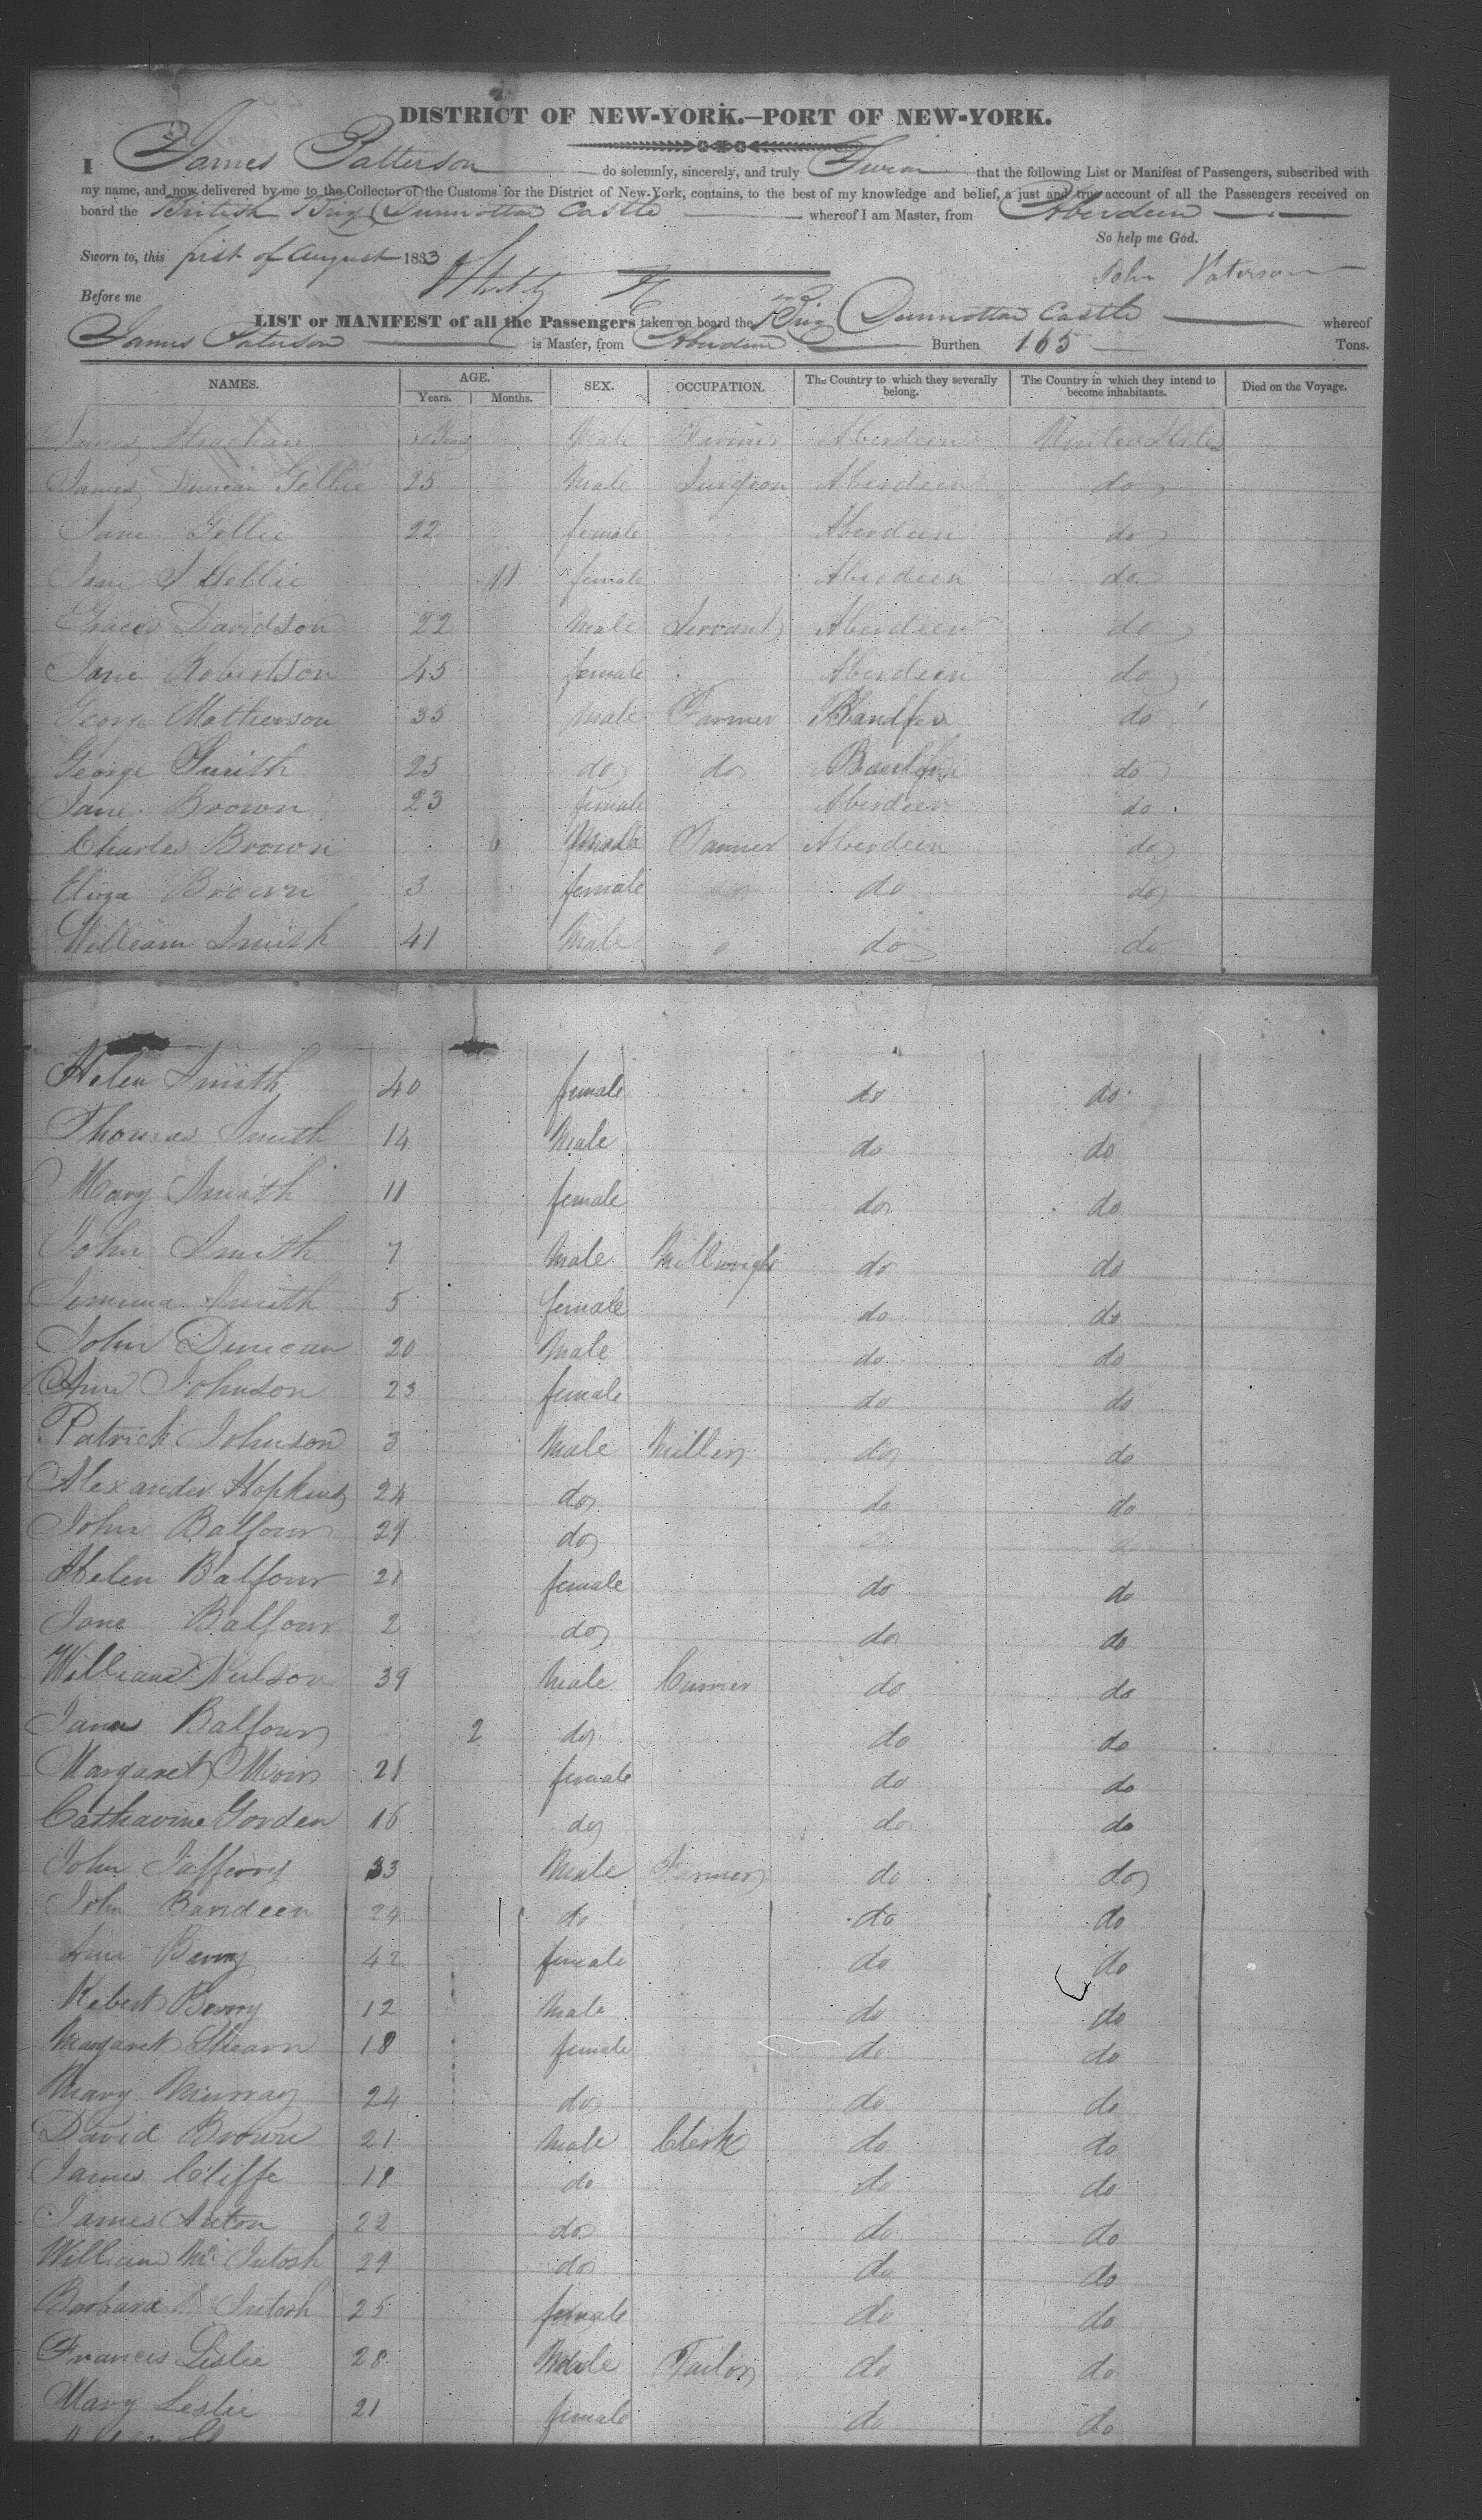 DISTRICT OF NEW-YORK.—PORT OF NEW-YORK.
I James Patterson do solemnly, sincerely, and truly Swear that the following List or Manifest of Passengers, subscribed with
my name, and now delivered by me to the Collector of the Customs for the District of New-York, contains, to the best of my knowledge and belief, a just and true account of all the Passengers received on
board the British Brig Dunnottar Castle whereof I am Master, from Aberdeen
So help me God.
Sworn to, this first of August 1833
John Paterson
Before me
LIST or MANIFEST of all the Passengers taken on board the Brig Dunnottar Castle whereof
James Paterson is Master, from Aberdeen Burthen 165 Tons.
NAMES. AGE. Years. Months. SEX. OCCUPATION. The Country to which they severally belong. The Country in which they intend to become inhabitants. Died on the Voyage.
James Strachan Male Farmer Aberdeen United States
James Duncan Gellie 25 Male Surgeon Aberdeen do
Jane Gellie 22 female Aberdeen do
Jane S Gellie 11 female Aberdeen do
Davidson 22 Male Servant Aberdeen do
Jane Robertson 45 female Aberdeen do
George Matherson 35 Male Farmer do
George Smith 25 do do do
Jane Brown 23 female Aberdeen do
Charles Brown 6 Male Aberdeen do
Eliza Brown 3 female do do
William Smith 41 Male do do
Helen Smith 40 female do do
Thomas Smith 14 Male do do
Mary Smith 11 female do do
John Smith 7 Male Millwright do do
Jemima Smith 5 female do do
John Duncan 20 Male do do
Ann Johnson 23 female do do
Patrick Johnson 3 Male Miller do do
Alexander Hopkins 24 do do do
John Balfour 29 do
Helen Balfour 21 female do do
Jane Balfour 2 do do do
William Neilson 39 Male Currier do do
James Balfour 2 do do do
Margaret Moir 21 female do do
Catharine Gorden 16 do do do
John Jafferey 33 Male Farmer do do
John Bandeen 24 do do do
Ann Berry 42 female do do
Robert Berry 12 Male do do
Margaret Shearn 18 female do do
Mary Murray 24 do do do
David Brown 21 Male Clerk do do
James Cliffe 18 do do do
James Anton 22 do do do
William Mc Intosh 29 do do do
Barbara Mc Intosh 25 female do do
Francis Leslie 28 Male Tailor do do
Mary Leslie 21 female do do